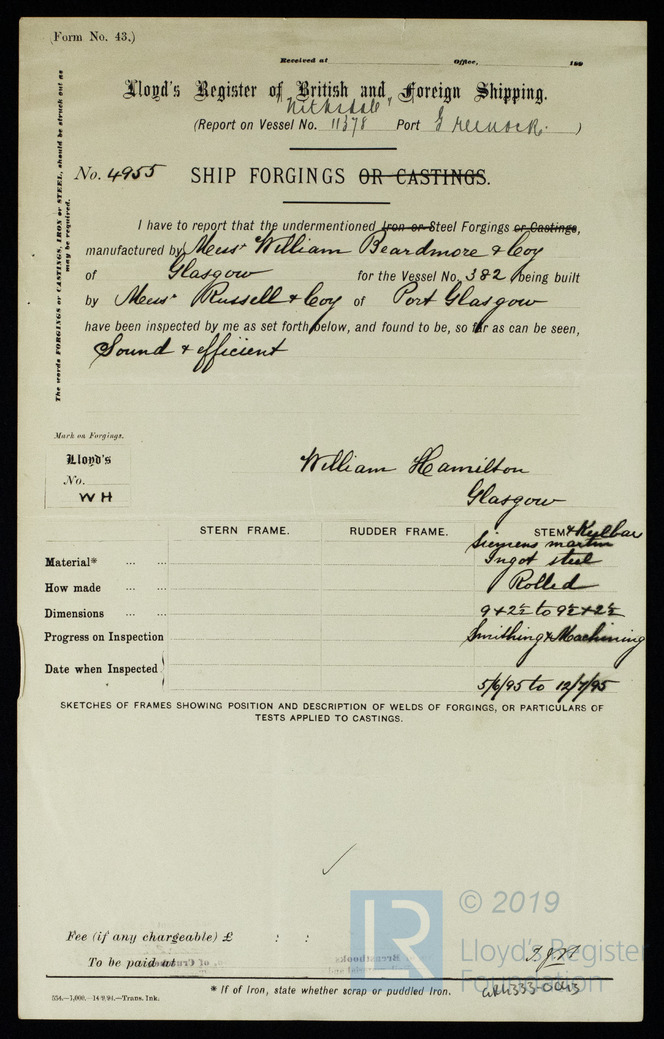 (Form No. 43.)
Received at Office, 189
Lloyd's Register of British and Foreign Shipping.
"Nithsdale"
(Report on Vessel No. 11378 Port Greenock. )
The words FORGINGS or CASTINGS, IRON or STEEL, should be struck out as
may be required.
No. 4955 SHIP FORGINGS OR CASTINGS.
I have to report that the undermentioned Iron or Steel Forgings or Castings,
manufactured by Messrs William Beardmore & Coy
of Glasgow for the Vessel No. 382 being built
by Messrs Russell & Coy of Port Glasgow
have been inspected by me as set forth below, and found to be, so far as can be seen,
Sound & efficient
Mark on Forgings.
Lloyd's
No.
W H
William Hamilton
Glasgow
STERN FRAME. RUDDER FRAME. STEM & Keelbar
Siemens martin
Material* ... ... Ingot steel
How made ... ... Rolled
Dimensions ... ... 9 x 2½ to 9½ x 2½
Progress on Inspection Smithing & Machining
Date when Inspected 5/6/95 to 12/7/95
SKETCHES OF FRAMES SHOWING POSITION AND DESCRIPTION OF WELDS OF FORGINGS, OR PARTICULARS OF
TESTS APPLIED TO CASTINGS.
Fee (if any chargeable) £ : :
To be paid at
* If of Iron, state whether scrap or puddled Iron.
554.—1,000.—14/9/94.—Trans. Ink.
GRK333-0043
LR
© 2019
Lloyd's Register
Foundation